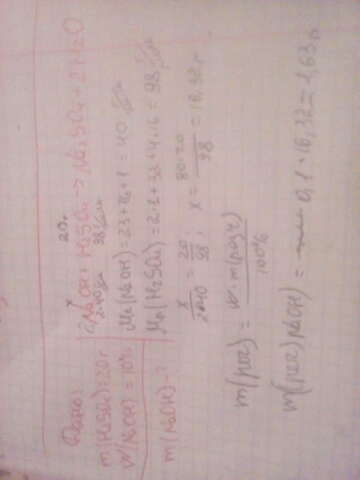 Дано:
m(H2SO4)=20г
W(NaOH)=10%
m(NaOH)-?
x 20г
2NaOH+H2SO4->Na2SO4+2H2O
2·40 98
Mr(NaOH)=23+16+1=40
Mr(H2SO4)=2·1+33+4·16=98
x/2·40=20/98; x=80·20/98=16,32г
m(рег)=W·m(рег)/100%
m(рег)NaOH)= 0,1·16,32=1,63г